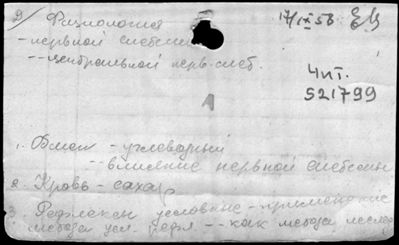 Физиология
17/IX 53
- нервной системы
-- центральной нерв. сист.
Чит.
521799
A
1. Обмен - углеводный
-- влияние нервной системы
2. Кровь - сахар
3. Рефлексы условные - применение
метода усл. рефл -- как метода исслед